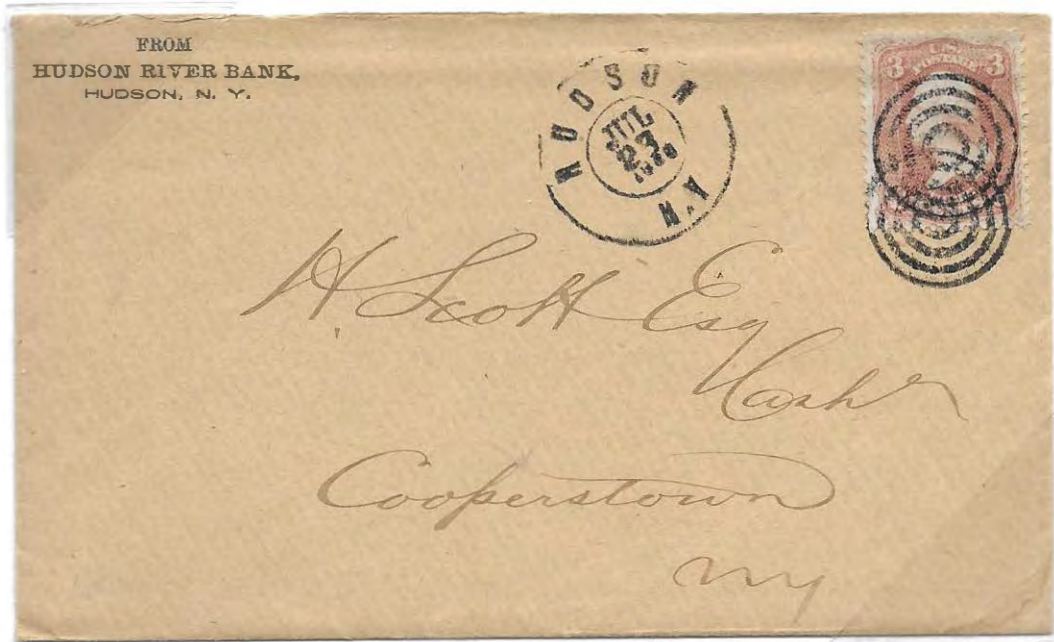 FROM
HUDSON RIVER BANK,
HUDSON, N. Y.
HUDSON
JUL
27
N.Y
3 U.S. 3
POSTAGE
H Scott Esq
Cashr
Cooperstown
NY